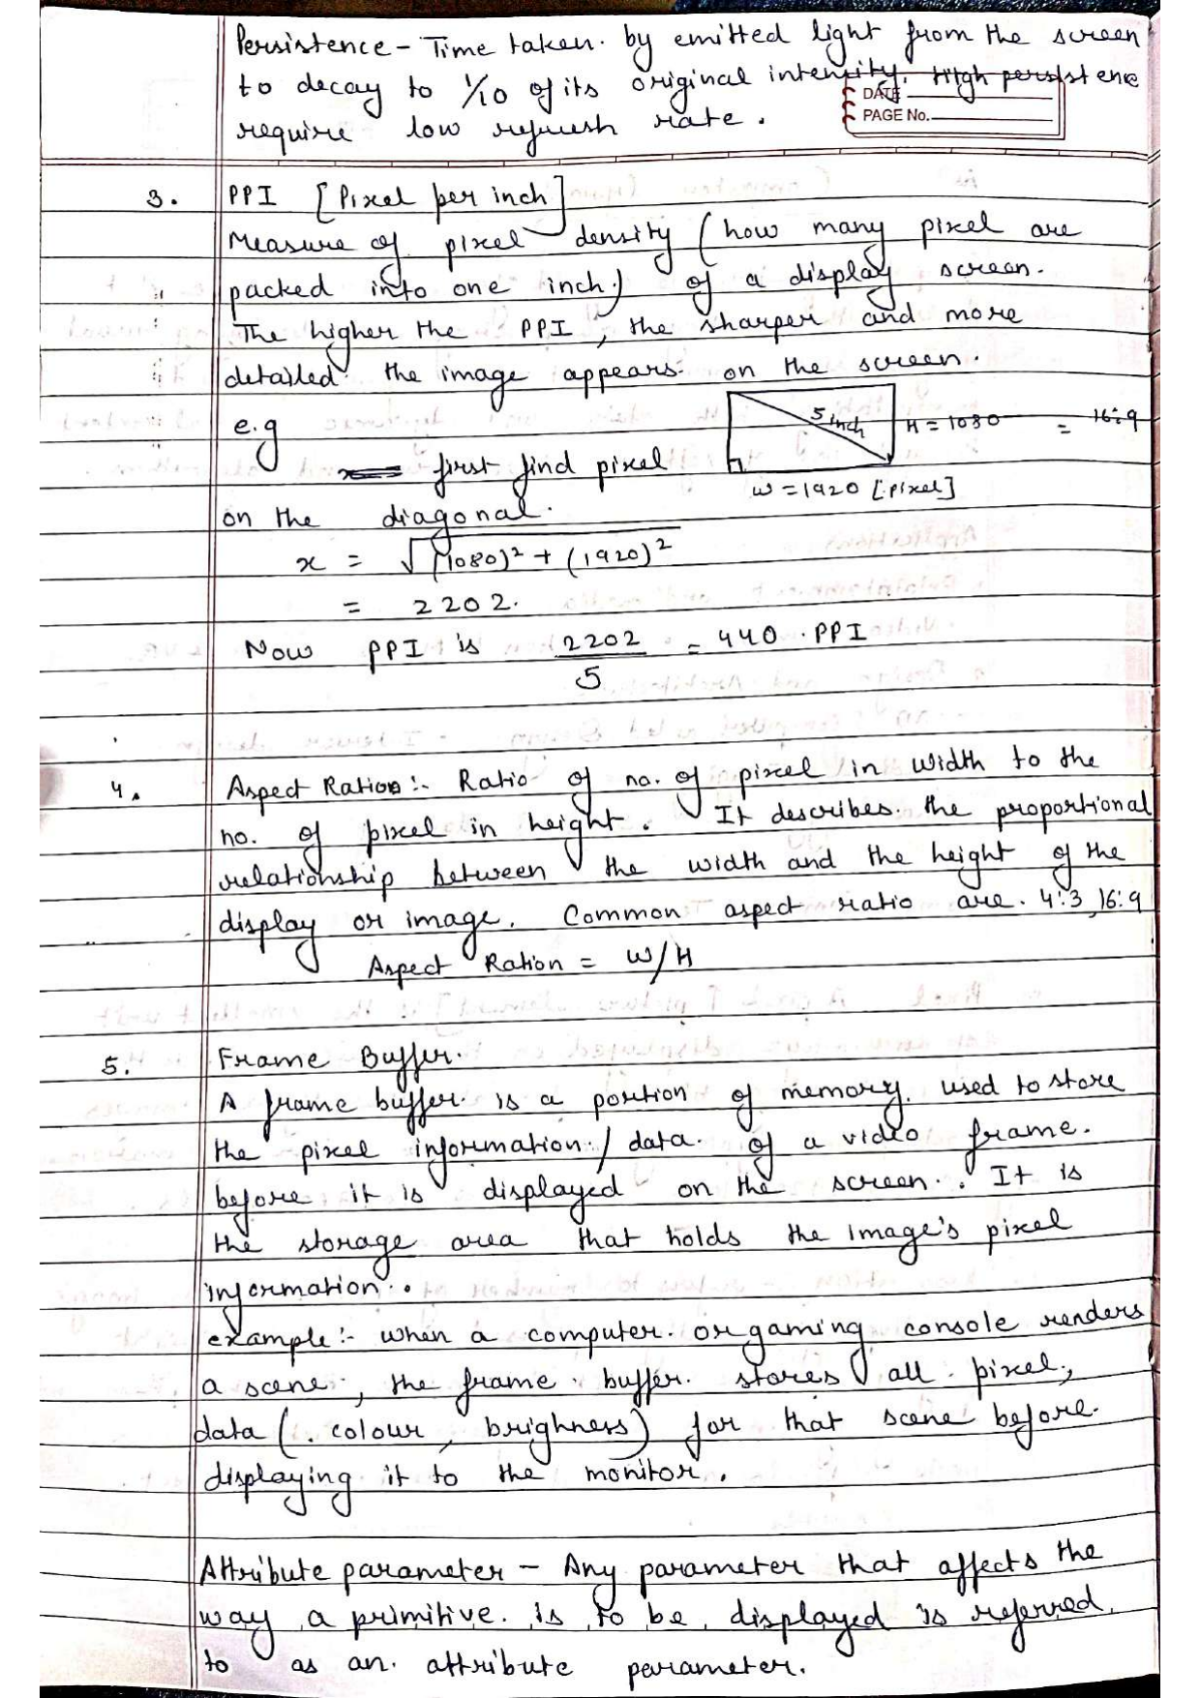 Persistence - Time taken. by emitted light from the screen
to decay to 1/10 of its original intensity. High persistence
DATE
PAGE No.
require low refresh rate.
3. PPI [Pixel per inch]
Measure of pixel density (how many pixel are
packed into one inch.) of a display screen.
The higher the PPI, the sharper and more
detailed the image appears on the screen.
e.g
5 inch H = 1080 = 16:9
first find pixel
w = 1920 [pixel]
on the diagonal.
x = √(1080)² + (1920)²
= 2202.
Now PPI is 2202/5 = 440 . PPI
4. Aspect Ration :- Ratio of no. of pixel in width to the
no. of pixel in height. It describes the proportional
relationship between the width and the height of the
display or image. Common aspect ratio are. 4:3, 16:9
Aspect Ration = W/H
5. Frame Buffer.
A frame buffer is a portion of memory used to store
the pixel information / data of a video frame.
before it is displayed on the screen. It is
the storage area that holds the image's pixel
information.
example :- when a computer or gaming console renders
a scene, the frame buffer stores all pixel,
data (. colour, brighness) for that scene before
displaying it to the monitor.
Attribute parameter - Any parameter that affects the
way a primitive. is to be displayed is referred
to as an. attribute perameter.